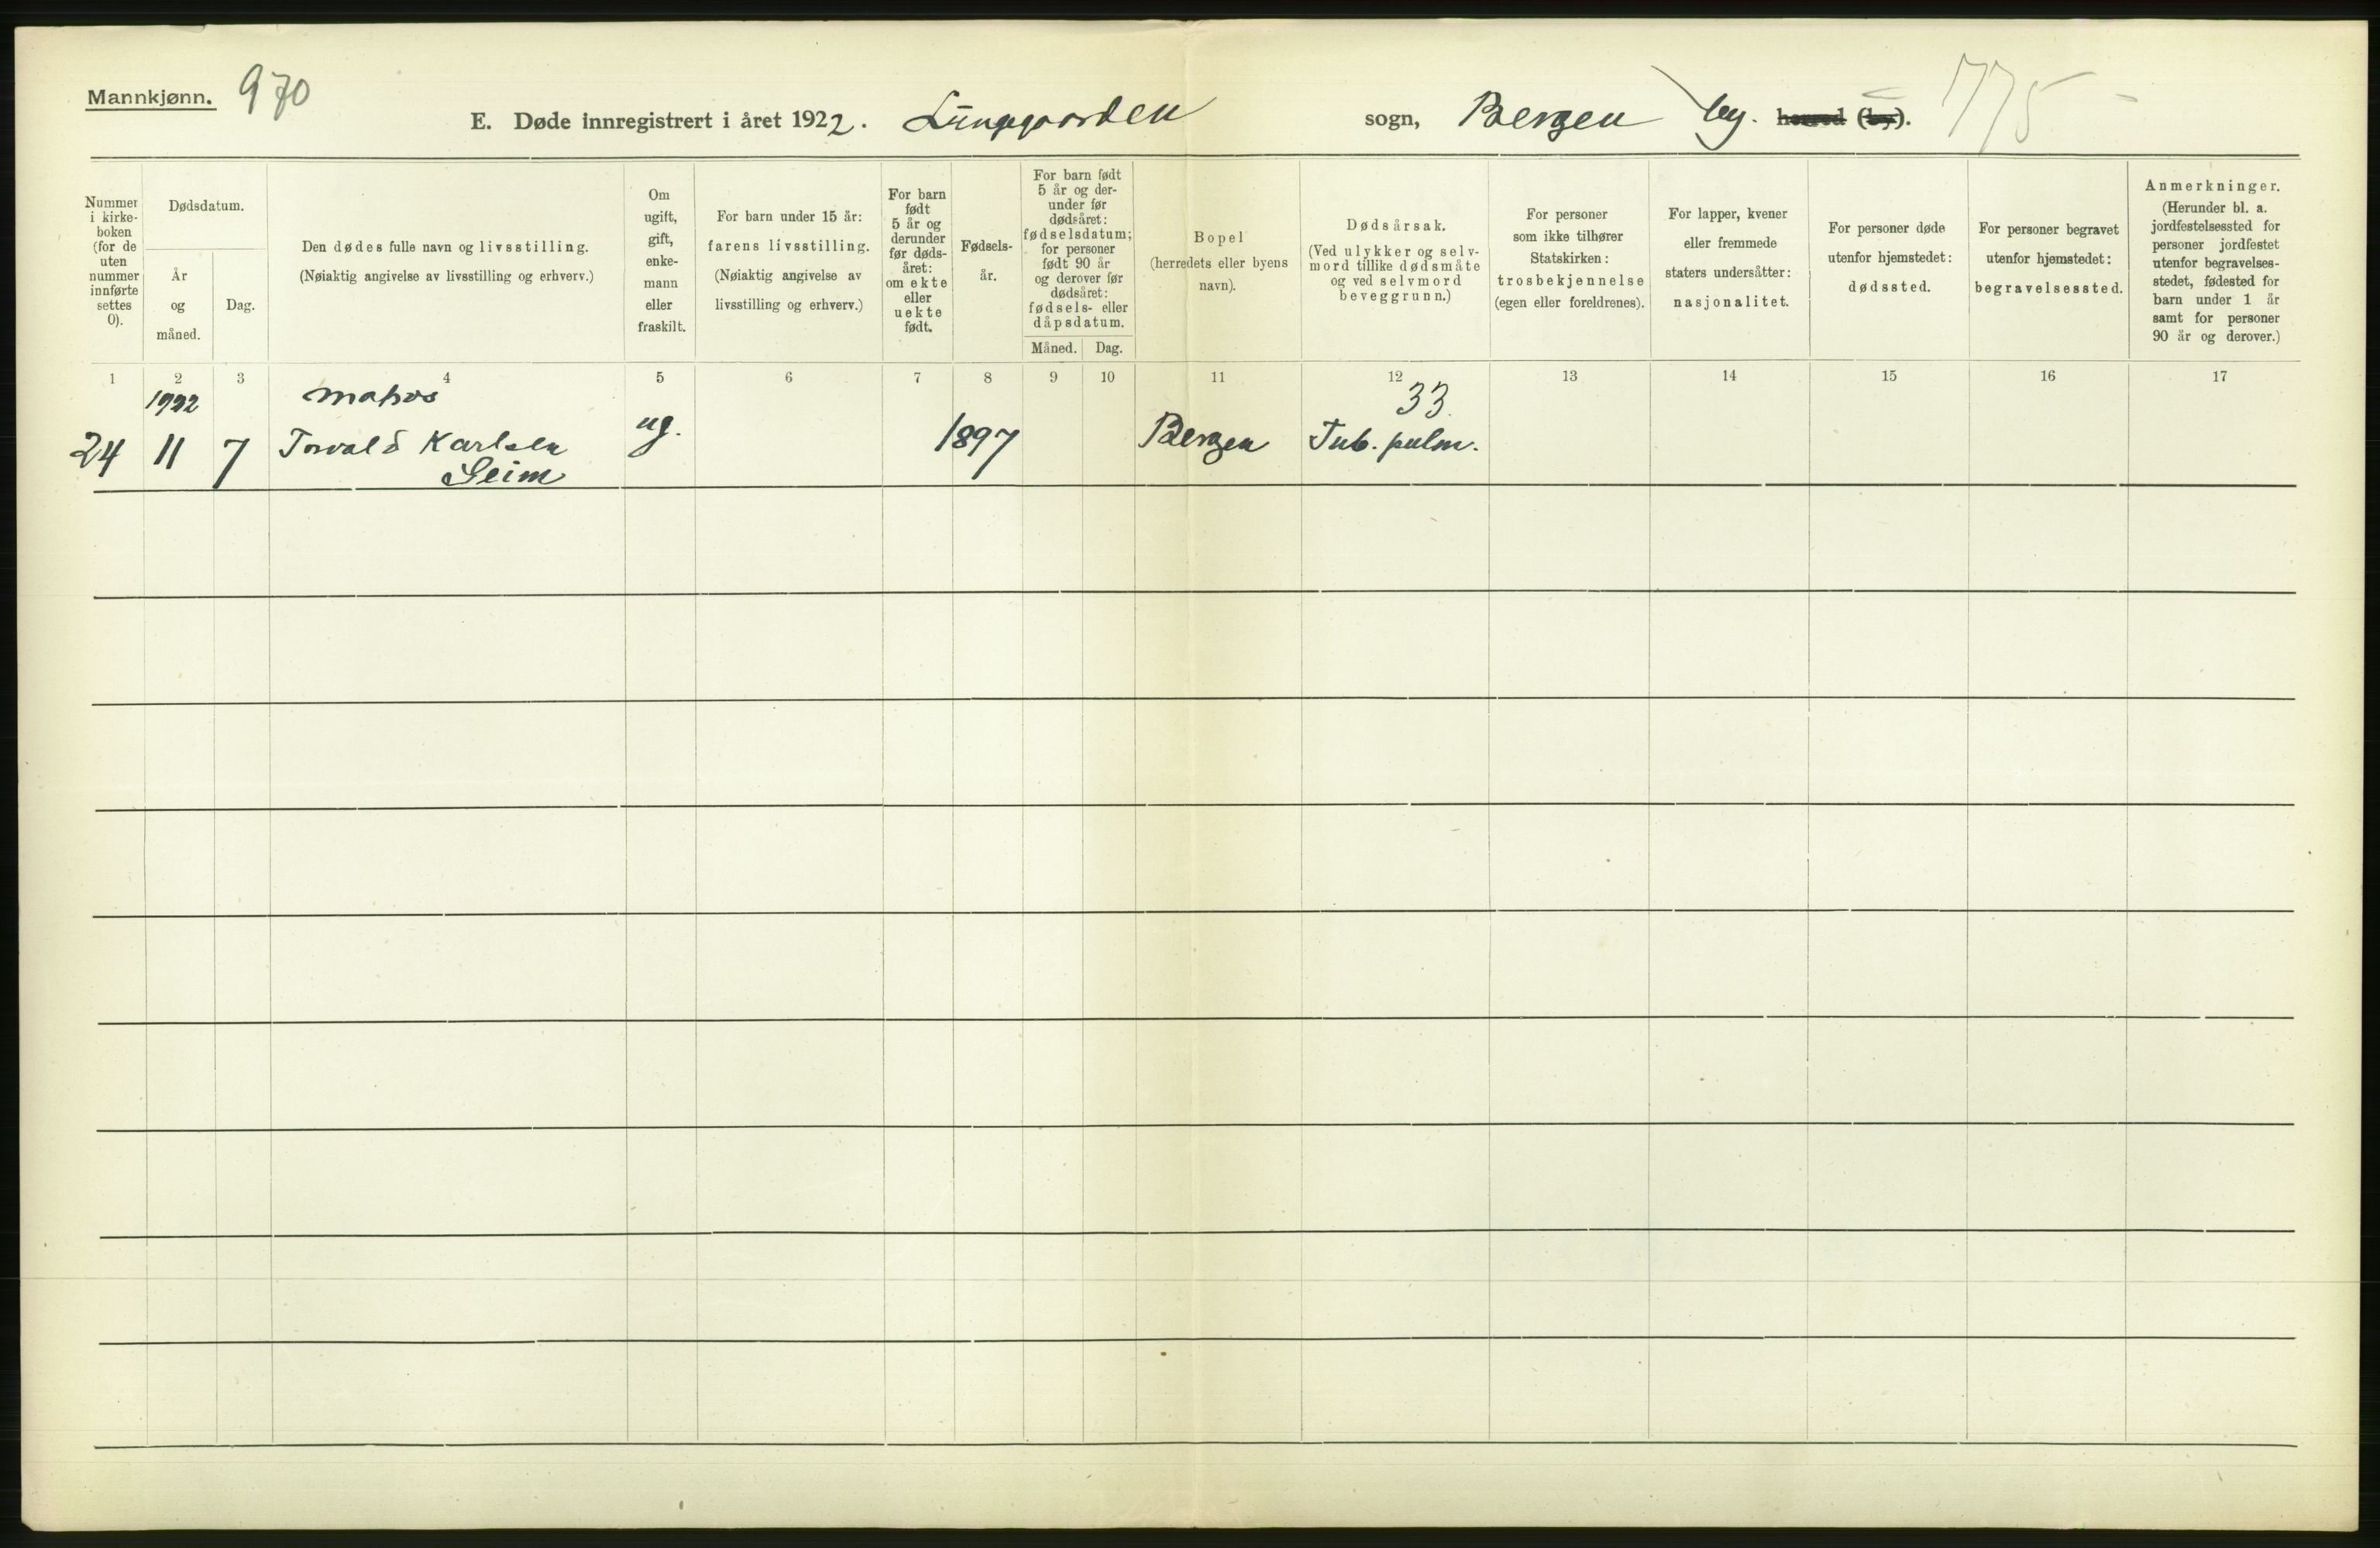 Mannkjønn. 970
E. Døde innregistrert i året 1922. Lungegaarden sogn, Bergen by. herred (by). 775
Nummer i kirke-boken (for de uten nummer innførte settes 0).
Dødsdatum.
År og måned.
Dag.
Den dødes fulle navn og livsstilling.
(Nøiaktig angivelse av livsstilling og erhverv.)
Om ugift, gift, enke-mann eller fraskilt.
For barn under 15 år:
farens livsstilling.
(Nøiaktig angivelse av
livsstilling og erhverv.)
For barn født 5 år og derunder før døds-året: om ekte eller uekte født.
Fødsels-år.
For barn født 5 år og der-under før dødsåret: fødselsdatum; for personer født 90 år og derover før dødsåret: fødsels- eller dåpsdatum.
Måned. Dag.
Bopel
(herredets eller byens
navn).
Dødsårsak.
(Ved ulykker og selv-
mord tillike dødsmåte
og ved selvmord
beveggrunn.)
For personer
som ikke tilhører
Statskirken:
trosbekjennelse
(egen eller foreldrenes).
For lapper, kvener
eller fremmede
staters undersåtter:
nasjonalitet.
For personer døde
utenfor hjemstedet:
dødssted.
For personer begravet
utenfor hjemstedet:
begravelsessted.
Anmerkninger.
(Herunder bl. a.
jordfestelsessted for
personer jordfestet
utenfor begravelses-
stedet, fødested for
barn under 1 år
samt for personer
90 år og derover.)
1 2 3 4 5 6 7 8 9 10 11 12 13 14 15 16 17
1922 33.
24 11 7 Torvald Karlsen ug. 1897 Bergen Tub. pulm.
Seim